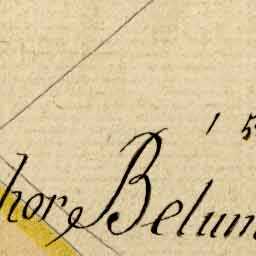 15
hore Belum